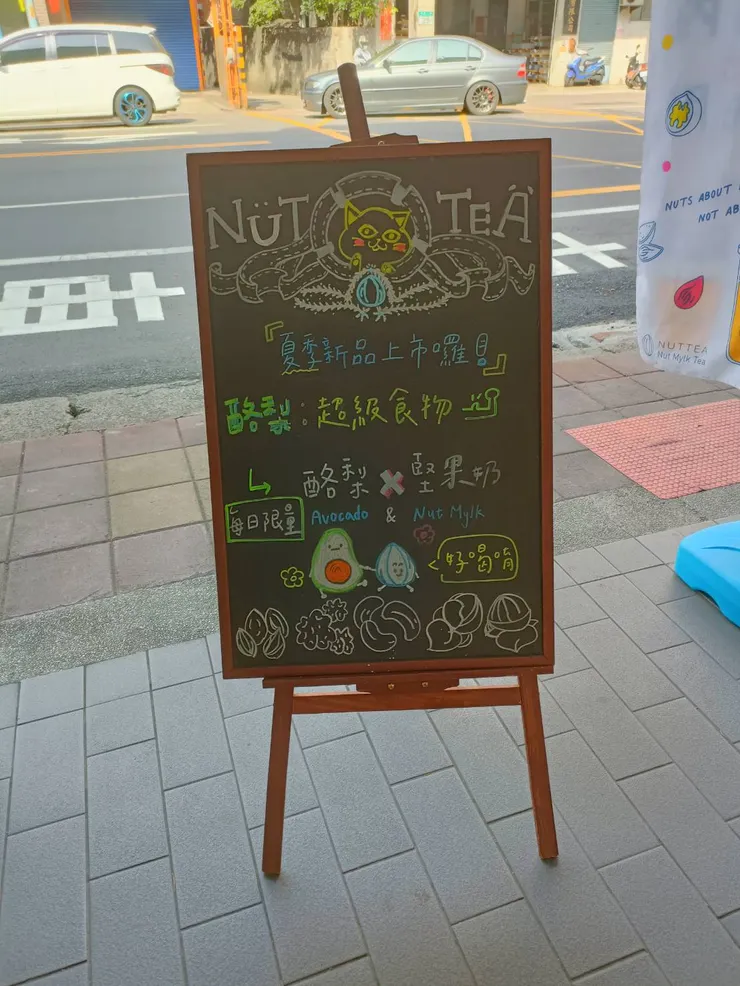 NÜT TEÄ
『夏季新品上市囉!』
酪梨:超級食物
酪梨×堅果奶
每日限量
Avocado & Nut Mylk
好喝唷
NUTS ABOUT
NOT AB
NUTTEA
Nut Mylk Tea